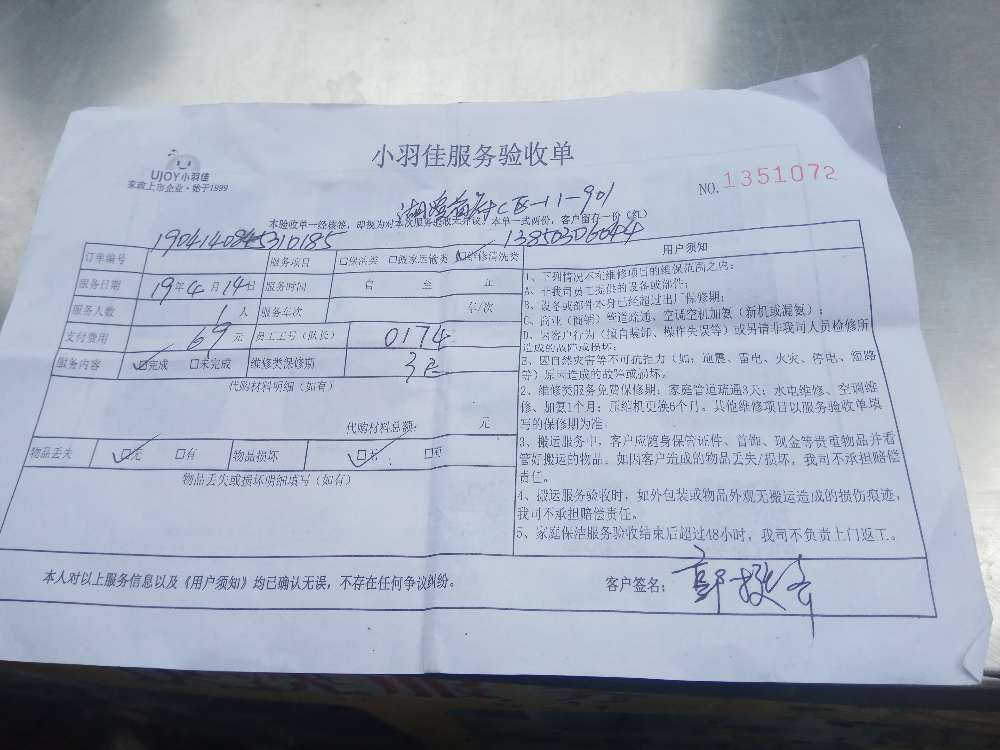 UJOY小羽佳
家政上市企业·始于1999
小羽佳服务验收单
NO. 1351072
C区-11-901
本验收单一经核签，即视为对本次服务验收无异议。本单一式两份，客户留存一份（红）
1904140845310185
13850306044
订单编号 服务项目 □保洁类 □搬家运输类 ☑维修清洗类
服务日期 19年4月14日 服务时间 时 至 时
服务人数 1人 服务车次 车/次
支付费用 69元 员工工号（队长） 0174
服务内容 ☑完成 □未完成 维修类保修期 3天
代购材料明细（如有）
代购材料总额： 元
物品丢失 ☑无 □有 物品损坏 ☑无 □有
物品丢失或损坏明细填写（如有）
用户须知
1、下列情况不在维修项目的维保范围之内：
A、非我司员工提供的设备或部件；
B、设备或部件本身已经超过出厂保修期；
C、商业（商铺）管道疏通、空调空机加氨（新机或漏氨）；
D、因客户行为（擅自装卸、操作失误等）或另请非我司人员检修所
造成的故障或损坏。
E、因自然灾害等不可抗拒力（如：地震、雷电、火灾、停电、短路
等）原因造成的故障或损坏。
2、维修类服务免费保修期：家庭管道疏通3天；水电维修、空调维
修、加氨1个月；压缩机更换6个月。其他维修项目以服务验收单填
写的保修期为准。
3、搬运服务中，客户应随身保管证件、首饰、现金等贵重物品并看
管好搬运的物品。如因客户造成的物品丢失/损坏，我司不承担赔偿
责任。
4、搬运服务验收时，如外包装或物品外观无搬运造成的损伤痕迹，
我司不承担赔偿责任。
5、家庭保洁服务验收结束后超过48小时，我司不负责上门返工。
本人对以上服务信息以及《用户须知》均已确认无误，不存在任何争议纠纷。
客户签名：